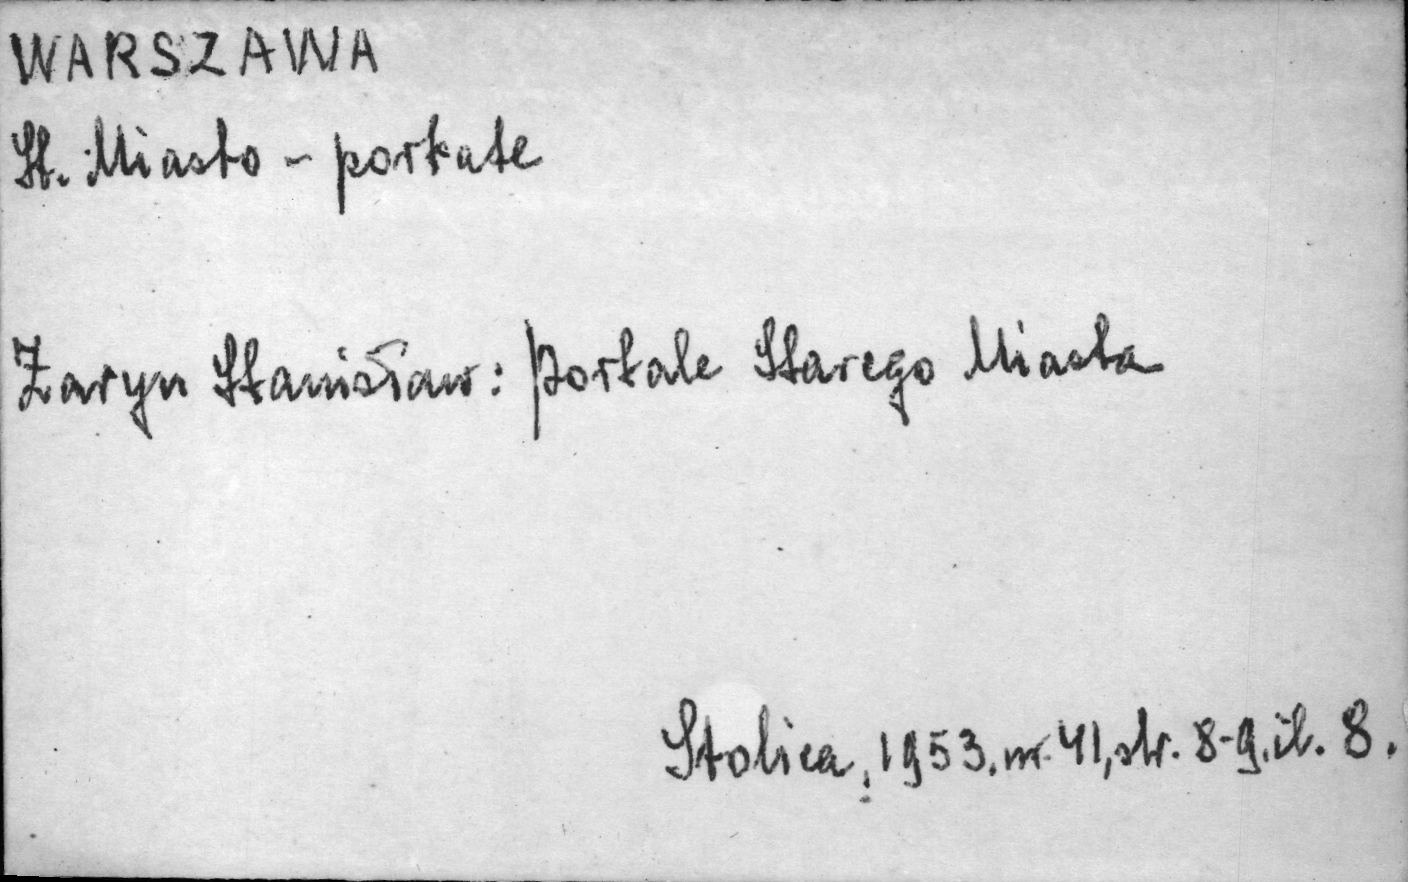 WARSZAWA
St. Miasto - portale
Żaryn Stanisław: Portale Starego Miasta
Stolica, 1953, nr. 41, str. 8-9, il. 8.